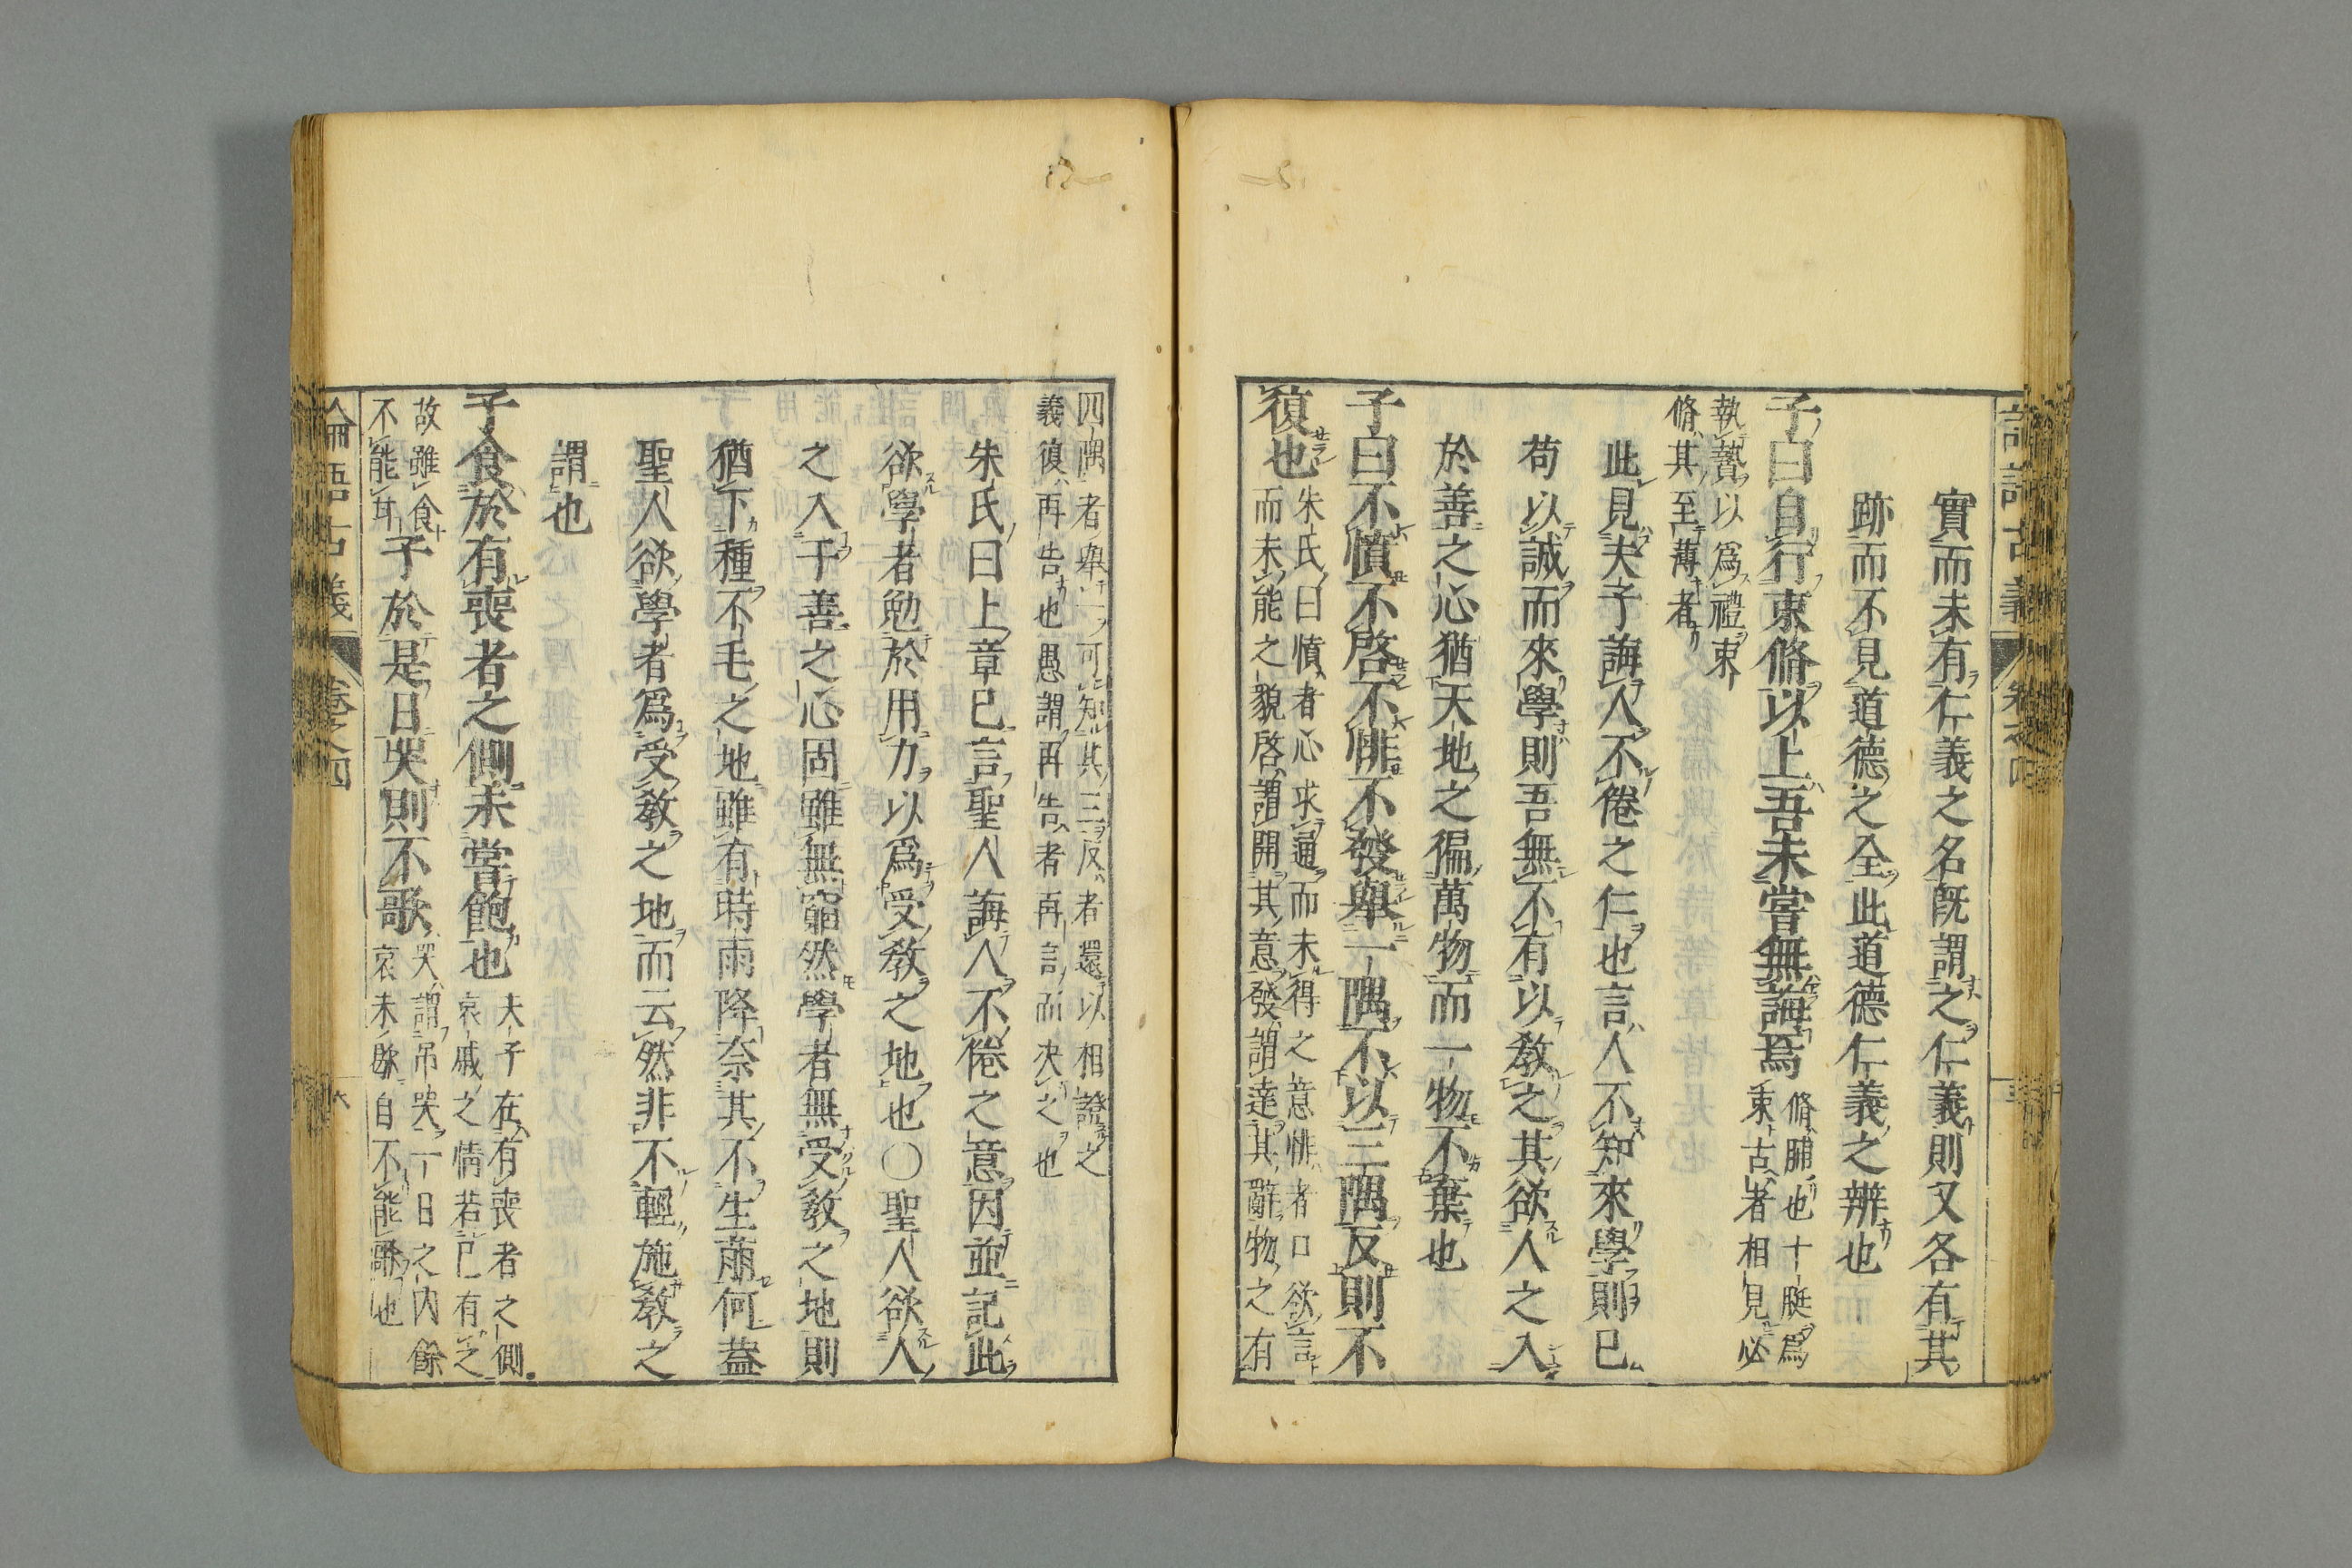 實而未有仁義之名既謂之仁義則又各有其
跡而不見道德之全此道德仁義之辨也
子曰自行束脩以上吾未嘗無誨焉
脩脯也十脡爲
束古者相見必
執贄以爲禮束
脩其至薄者
此見夫子誨人不倦之仁也言人不知來學則已
苟以誠而來學則吾無不有以教之其欲人之入
於善之心猶天地之徧萬物而一物不棄也
子曰不憤不啓不悱不發舉一隅不以三隅反則不
復也
朱氏曰憤者心求通而未得之意悱者口欲言
而未能之貌啓謂開其意發謂達其辭物之有
四隅者舉一可知其三反者還以相證之
義復再告也愚謂再告者再言而决之也
朱氏曰上章已言聖人誨人不倦之意因並記此
欲學者勉於用力以爲受教之地也〇聖人欲人
之入于善之心固雖無窮然學者無受教之地則
猶下種不毛之地雖有時雨降奈其不生萠何蓋
聖人欲學者爲受教之地而云然非不輕施教之
謂也
子食於有喪者之側未嘗飽也
夫子在有喪者之側
哀戚之情若己有之
故雖食
不能甘
子於是日哭則不歌
哭謂吊哭一日之内餘
哀未歇自不能歌也
論語古義 卷之四